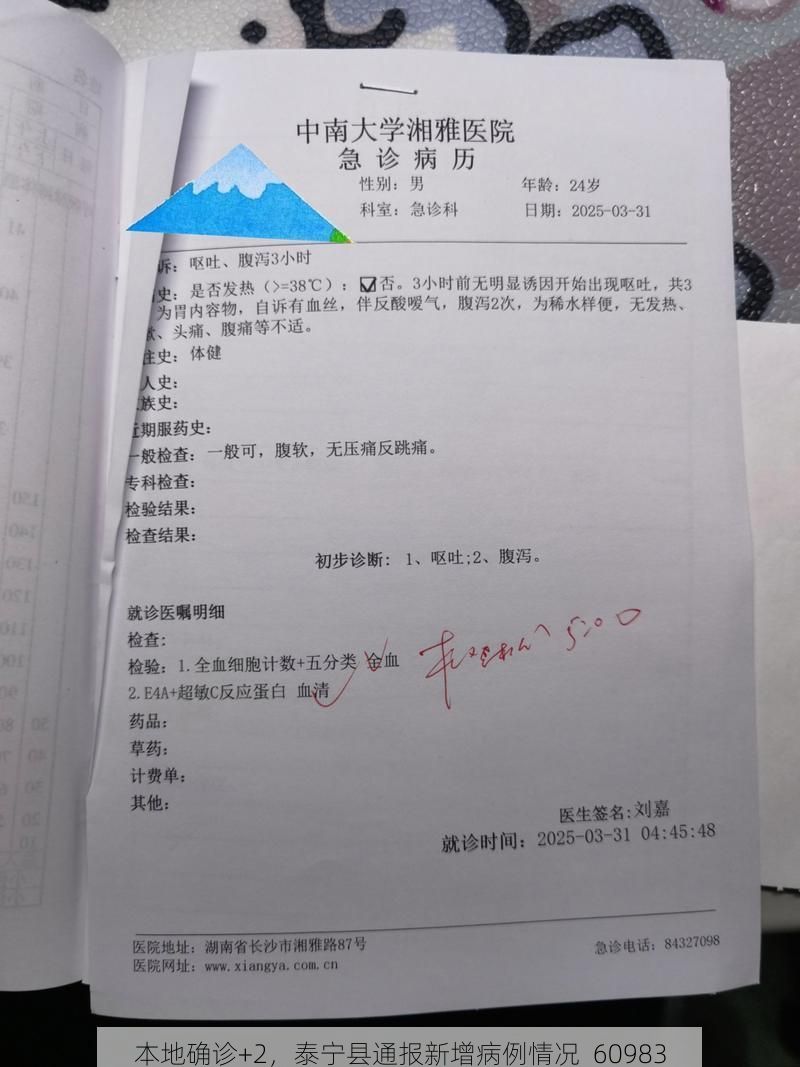 中南大学湘雅医院
急诊病历
性别：男 年龄：24岁
科室：急诊科 日期：2025-03-31
诉：呕吐、腹泻3小时
史：是否发热（>=38℃）：☑否。3小时前无明显诱因开始出现呕吐，共3
为胃内容物，自诉有血丝，伴反酸嗳气，腹泻2次，为稀水样便，无发热、
、头痛、腹痛等不适。
史：体健
人史：
族史：
近期服药史：
一般检查：一般可，腹软，无压痛反跳痛。
专科检查：
检验结果：
检查结果：
初步诊断：1、呕吐;2、腹泻。
就诊医嘱明细
检查：
检验：1.全血细胞计数+五分类 全血
2.E4A+超敏C反应蛋白 血清
5:00
药品：
草药：
计费单：
其他：
医生签名:刘嘉
就诊时间：2025-03-31 04:45:48
医院地址：湖南省长沙市湘雅路87号 急诊电话：84327098
医院网址：www.xiangya.com.cn
本地确诊+2，泰宁县通报新增病例情况 60983